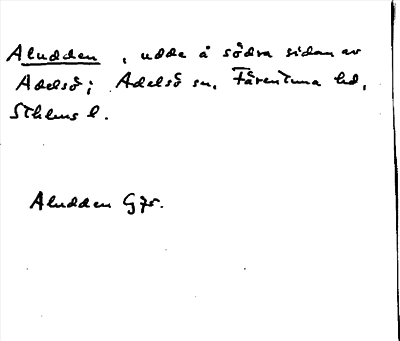 Aludden, udde å södra sidan av
Adelsö; Adelsö sn, Färentuna hd,
Sthlms l.
Aludden G75.